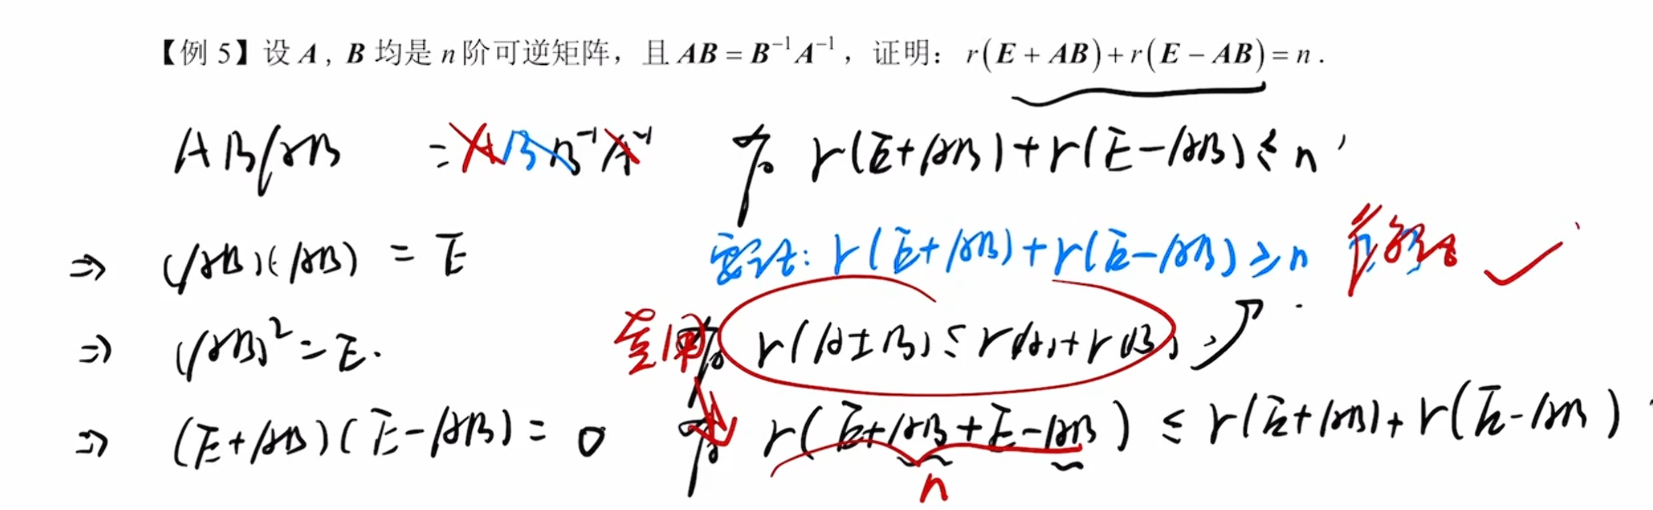 【例 5】设 A, B 均是 n 阶可逆矩阵，且 AB = B⁻¹A⁻¹，证明：r(E + AB) + r(E − AB) = n.
AB(AB = ABB⁻¹A⁻¹
⇒ (AB)(AB) = E
⇒ (AB)² = E.
⇒ (E+AB)(E−AB) = 0
r(E+AB)+r(E−AB) ≤ n
要证: r(E+AB)+r(E−AB) ≥ n
r(A±B) ≤ r(A)+r(B)
r(E+AB+E−AB) ≤ r(E+AB)+r(E−AB)
n